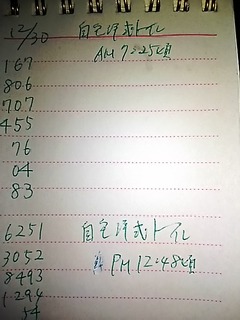 12/30 自宅洋式トイレ
167 AM 7:25頃
806
707
455
76
04
83
6251 自宅洋式トイレ
3052 PM 12:48頃
8493
1294
54